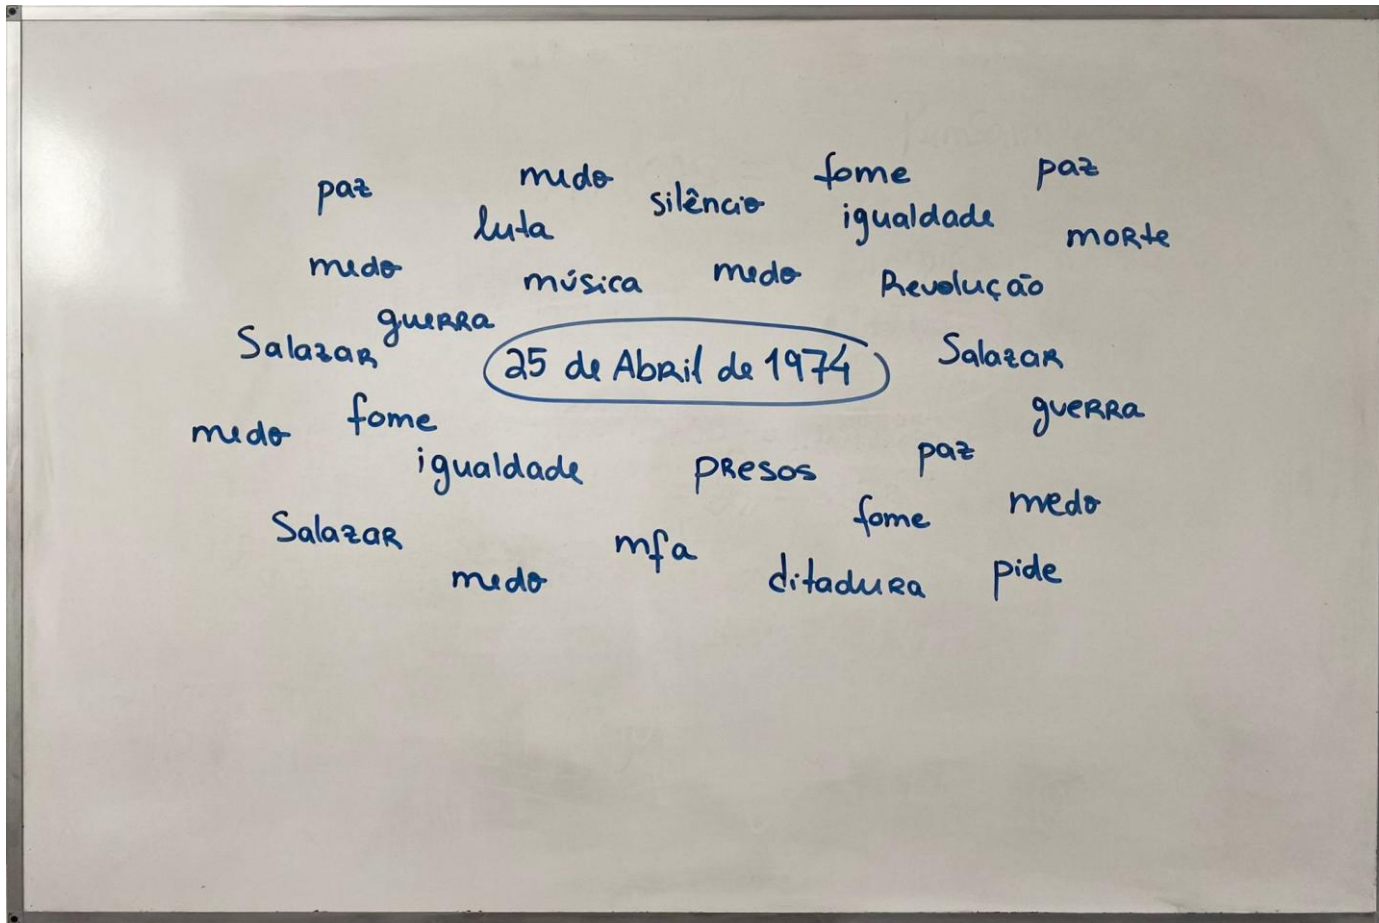 paz medo silêncio fome paz
luta igualdade morte
medo música medo Revolução
Salazar guerra 25 de Abril de 1974 Salazar
medo fome guerra
igualdade presos paz
Salazar mfa fome medo
medo ditadura pide